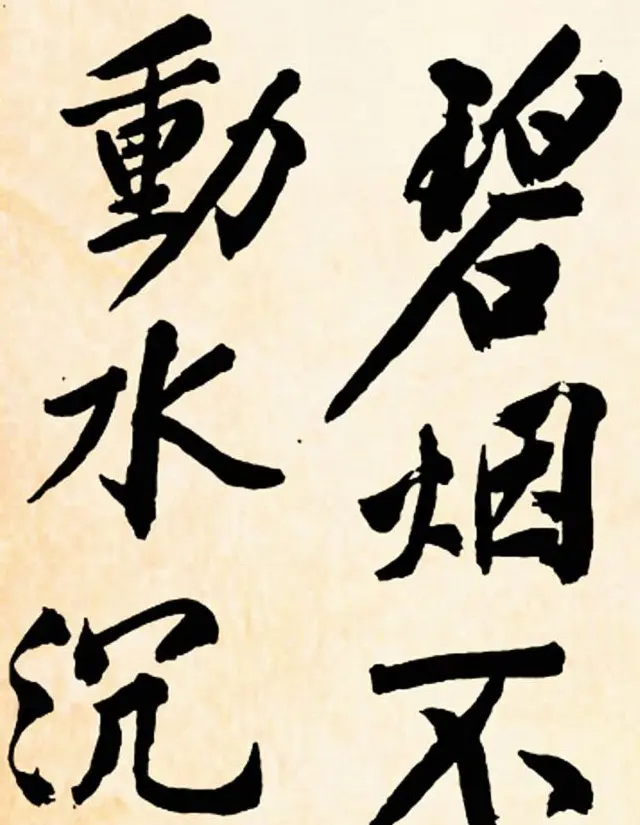 碧烟不
動水沉